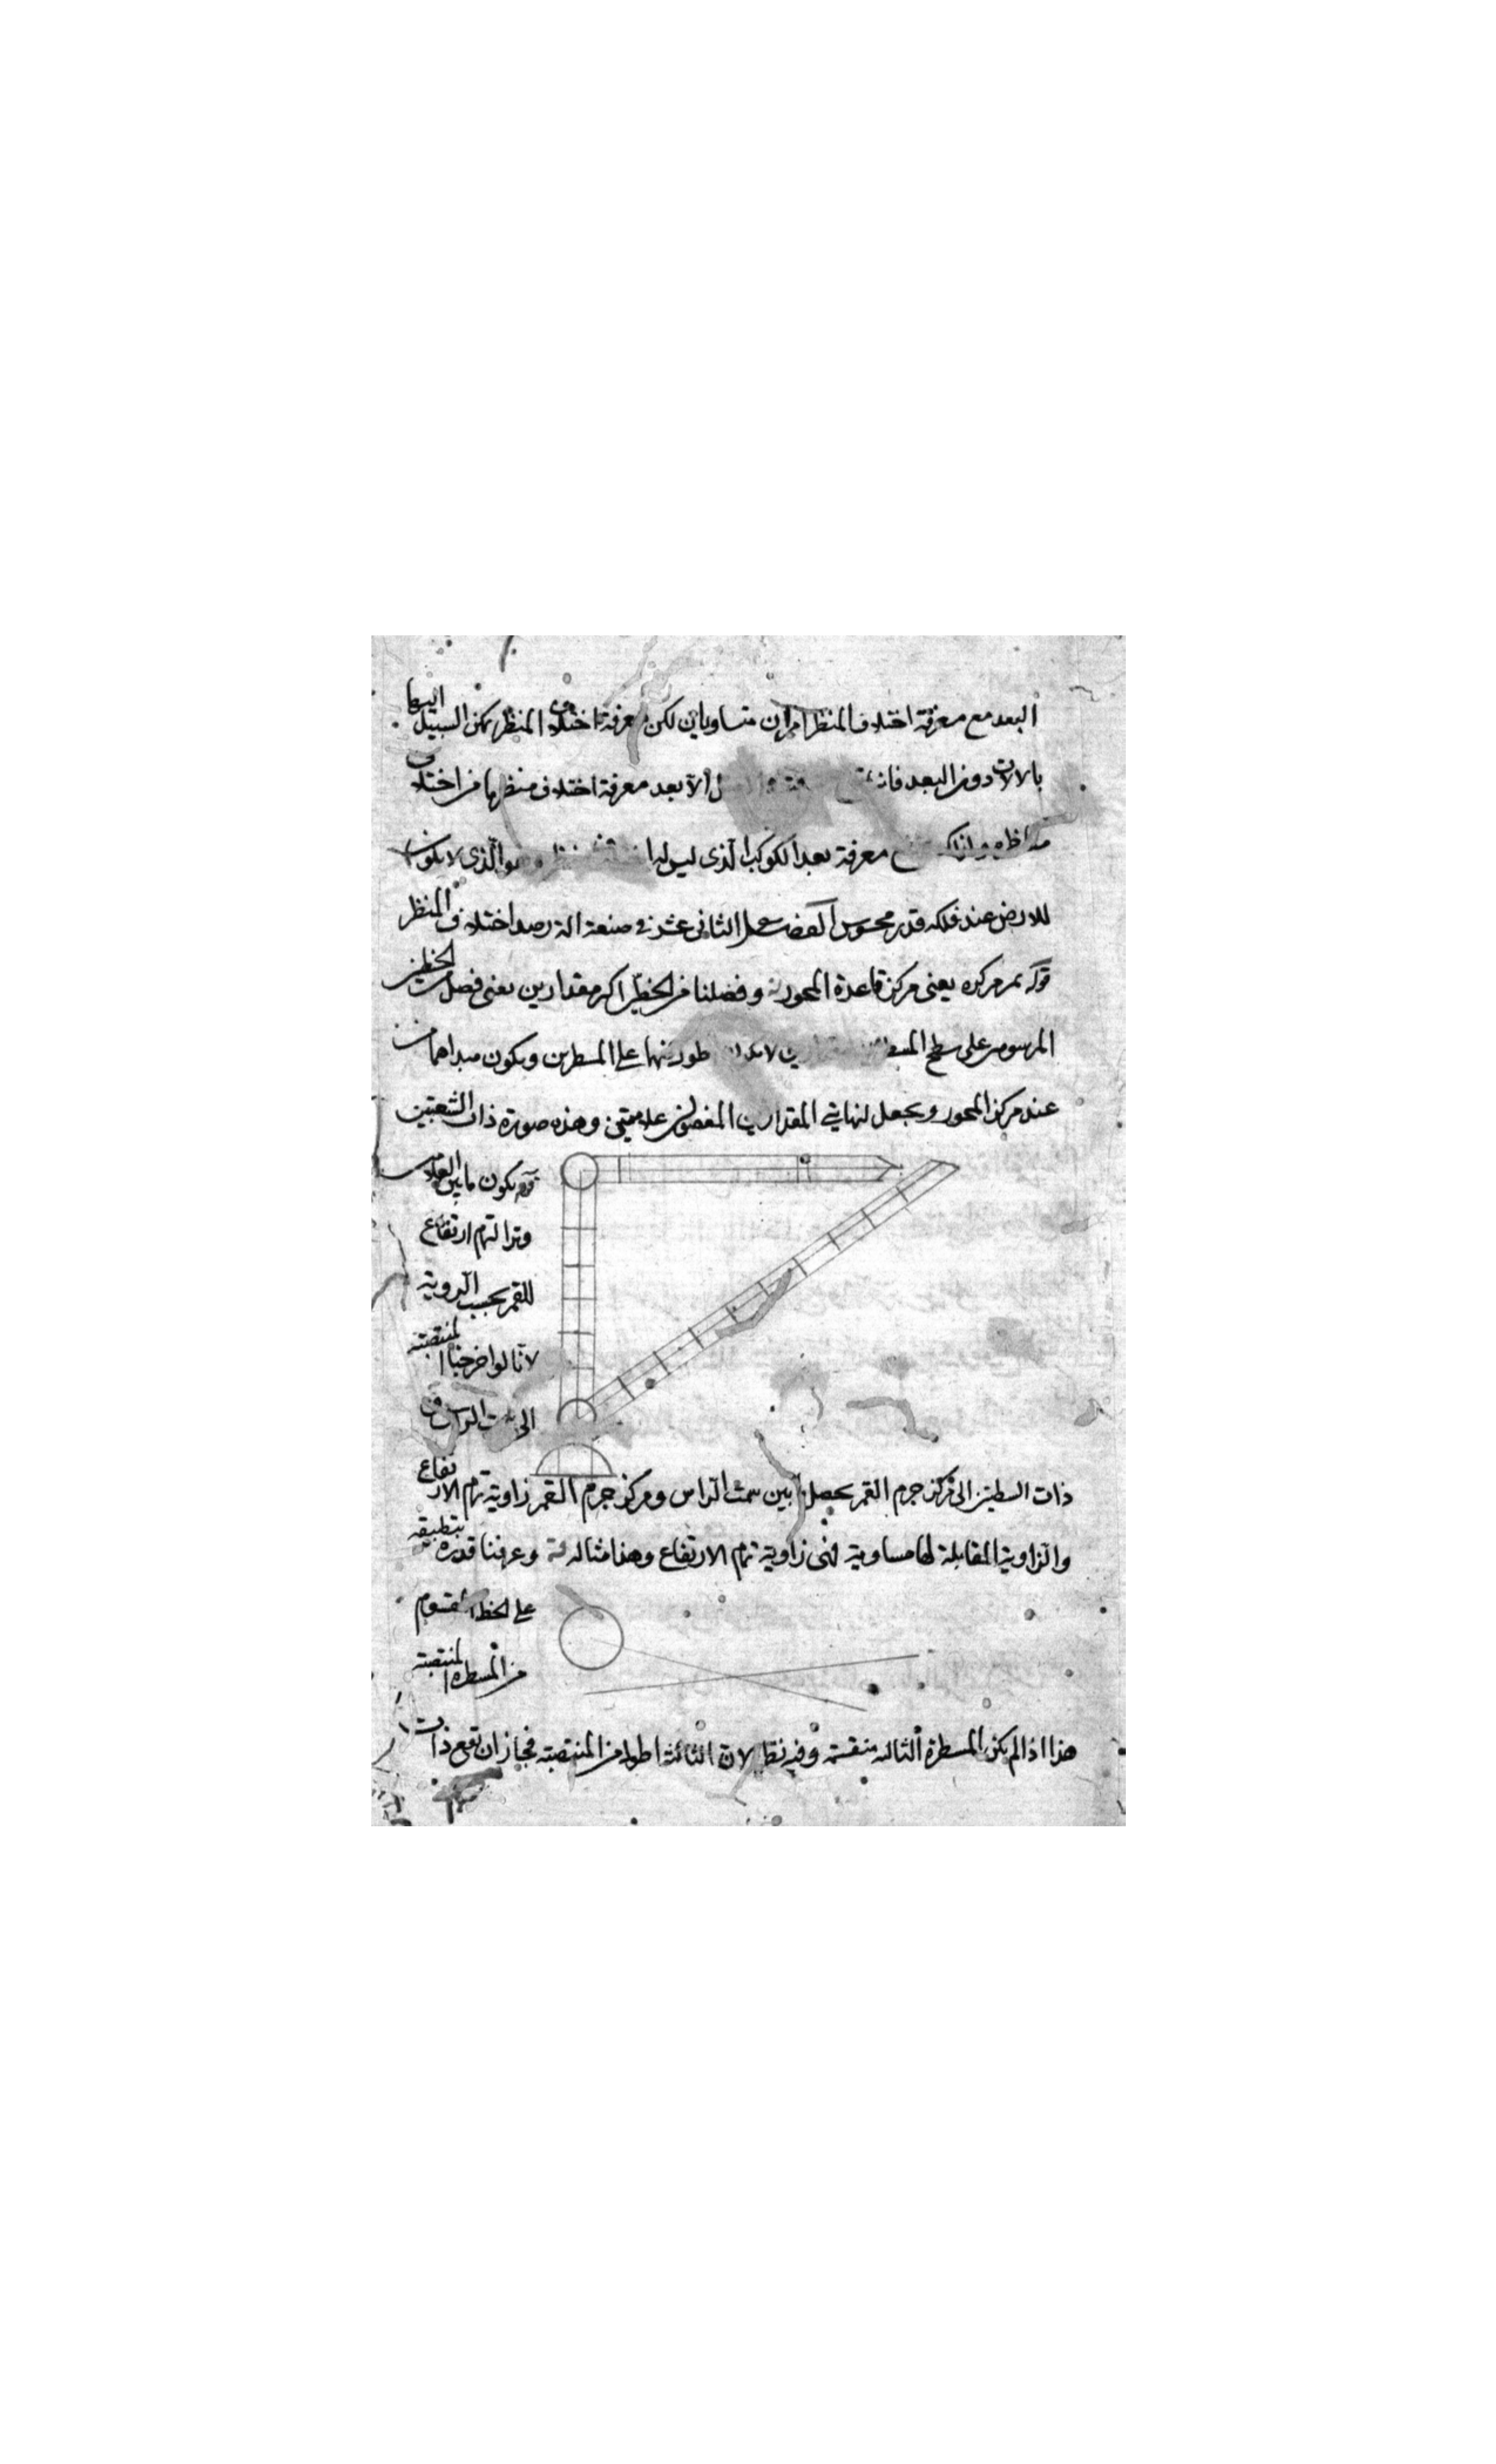 البعد مع معرفة اختلاف المنظر امران متساويان لكن معرفة اختلاف المنظر يمكن السبيل اليها
بالالات دون البعد فان الا بعد معرفة اختلاف منظرها من اختلاف
معرفة بعد الكوكب الذى ليس له الذى لا يكون
للارض عند فلكه قدر محسوس الفصل الثانى عشر فى صنعة الة رصد اختلاف المنظر
قوله بمركزه يعنى مركز قاعدة المحور وفضلنا من الخطين اكبر مقدارين يعنى فصل من الخطين
المرسومين على سطح على المسطرين ويكون مبداهما من
عند مركز المحور ويجعل لنهايتى المقدارين المفصولين علامتين وهذه صورة ذات الشعبتين
قوله يكون ما بين العلامتين
وترا لتمام ارتفاع
للقمر بحسب الروية
لانا لو اخرجنا المنتصبة
الى سمت الراس و
ذات السطين الى مركز جرم القمر يحصل بين سمت الراس ومركز جرم القمر زاوية تمام الارتفاع
والزاوية المقابلة لها مساوية فهى زاوية تمام الارتفاع وهذا مثاله وعرفنا قدره بتطبيقه
على الخط المقسوم
من المسطرة المنتصبة
هذا اذا لم يكن المسطرة الثالثه منقسمة وفيه نظر لان الثالثة اطول من المنتصبة فجاز ان تقع ذات